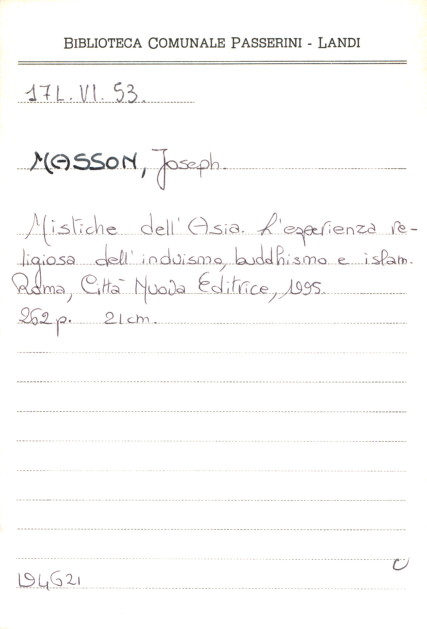 BIBLIOTECA COMUNALE PASSERINI - LANDI
17L. VI. 53.
MASSON, Joseph.
Mistiche dell'Asia. L'esperienza re-
ligiosa dell'induismo, buddhismo e islam.
Roma, Città Nuova Editrice, 1995.
262 p. 21 cm.
194621